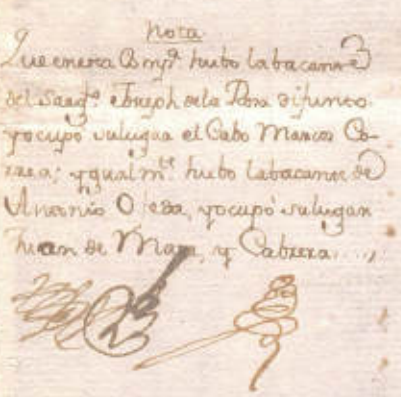 Nota
Que en esta Compª. hubo la bacante
del Sargtº. Joseph de la Rosa difunto.
y ocupó su lugar el Cabo Marcos Co-
rrea; y igualmte. hubo la bacante de
Antonio Ojeda, y ocupó su lugar
Juan de Mara, y Cabrera....,